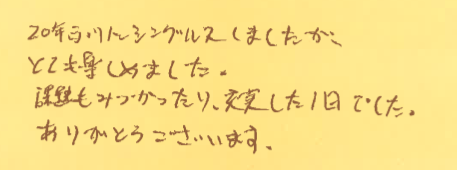 20年ぶりにシングルスしましたが、
とても楽しめました。
課題もみつかったり、充実した1日でした。
ありがとうございます。